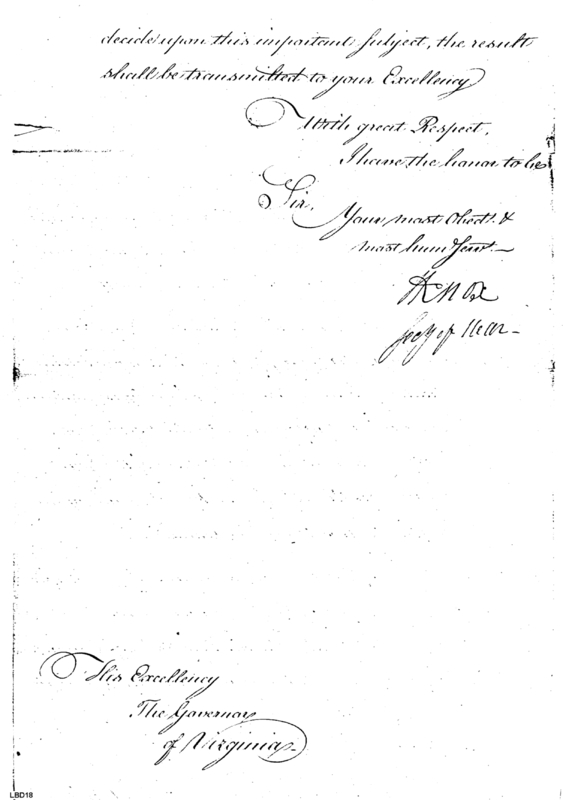 decide upon this important subject, the result
shall be transmitted to your Excellency
With great Respect,
I have the honor to be
Sir,
Your most Obedt. &
most hum Servt.—
HKnox
Secy of War—
His Excellency
The Governor
of Virginia—
LBD18